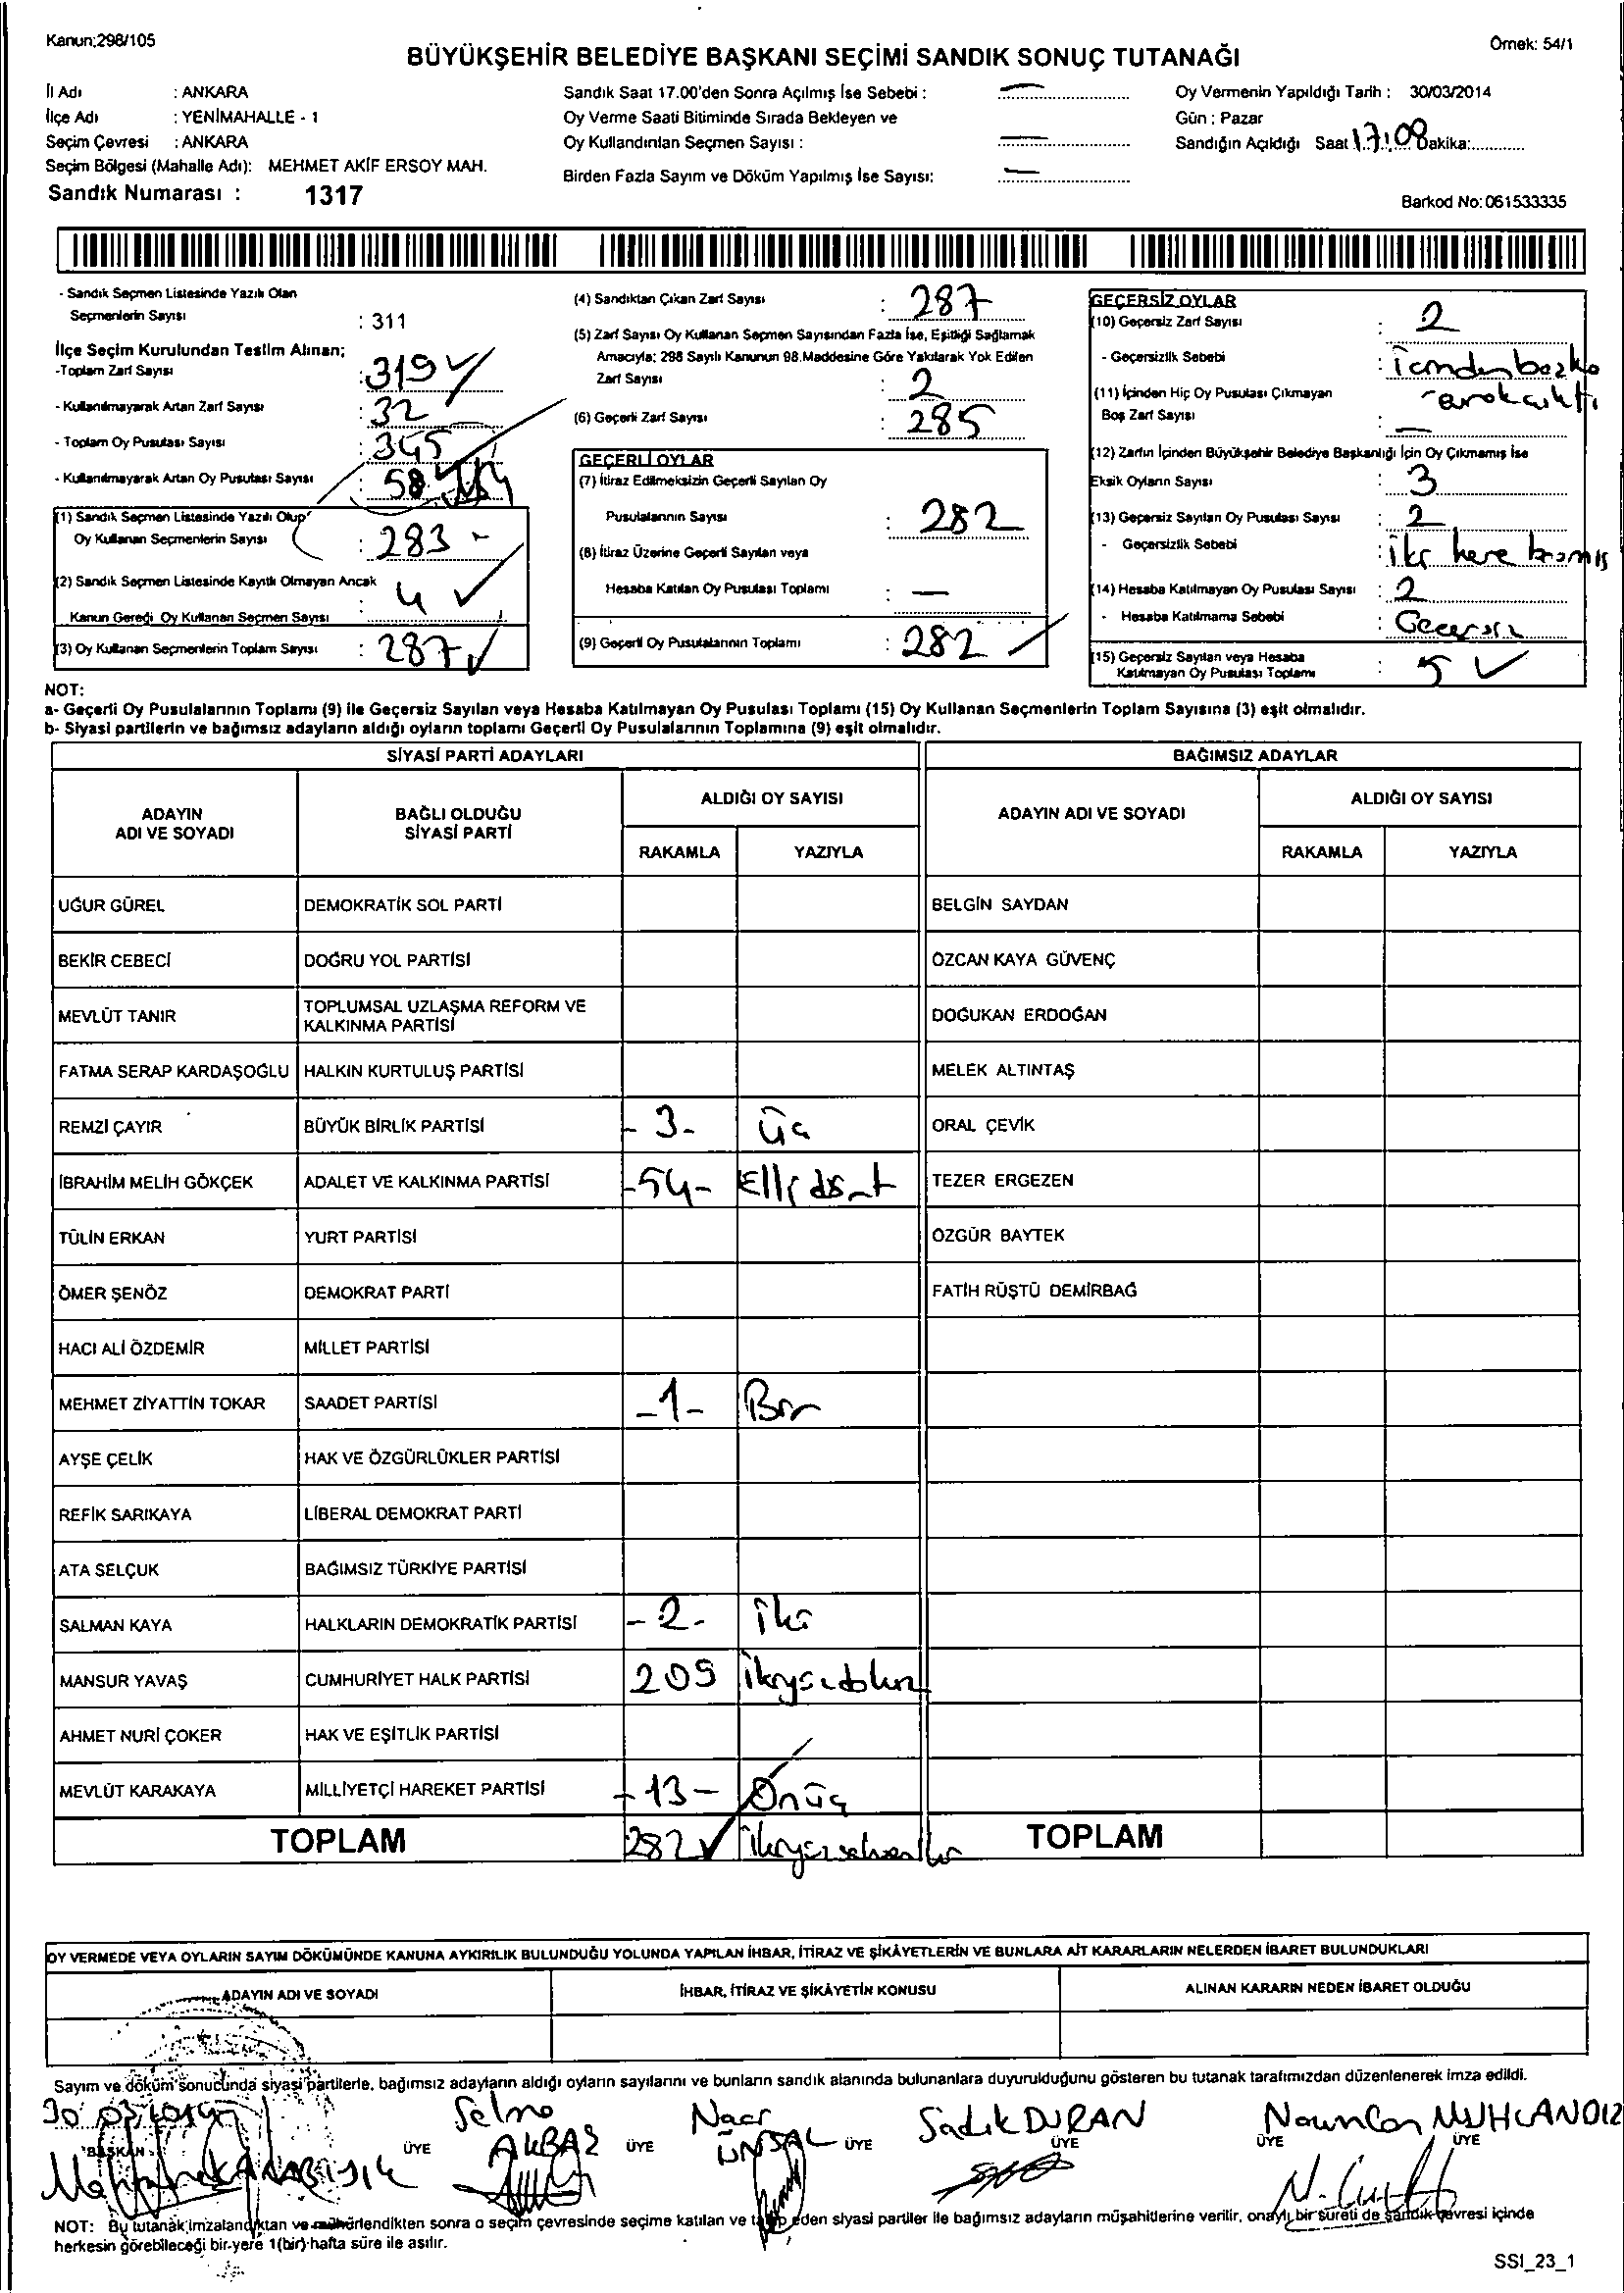 Kanun:298/105
Örnek: 54/1
BÜYÜKŞEHİR BELEDİYE BAŞKANI SEÇİMİ SANDIK SONUÇ TUTANAĞI
İl Adı : ANKARA
İlçe Adı : YENİMAHALLE - 1
Seçim Çevresi : ANKARA
Seçim Bölgesi (Mahalle Adı): MEHMET AKİF ERSOY MAH.
Sandık Numarası : 1317
Sandık Saat 17.00'den Sonra Açılmış İse Sebebi : —
Oy Verme Saati Bitiminde Sırada Bekleyen ve
Oy Kullandırılan Seçmen Sayısı : —
Birden Fazla Sayım ve Döküm Yapılmış İse Sayısı: —
Oy Vermenin Yapıldığı Tarih : 30/03/2014
Gün : Pazar
Sandığın Açıldığı Saat 17:08 Dakika:
Barkod No: 061533335
- Sandık Seçmen Listesinde Yazılı Olan
Seçmenlerin Sayısı : 311
İlçe Seçim Kurulundan Teslim Alınan;
-Toplam Zarf Sayısı : 319
- Kullanılmayarak Artan Zarf Sayısı : 32
- Toplam Oy Pusulası Sayısı : 345
- Kullanılmayarak Artan Oy Pusulası Sayısı : 58
(1) Sandık Seçmen Listesinde Yazılı Olup
Oy Kullanan Seçmenlerin Sayısı : 283 -
(2) Sandık Seçmen Listesinde Kayıtlı Olmayan Ancak
Kanun Gereği Oy Kullanan Seçmen Sayısı : 4
(3) Oy Kullanan Seçmenlerin Toplam Sayısı : 287
(4) Sandıktan Çıkan Zarf Sayısı : 287
(5) Zarf Sayısı Oy Kullanan Seçmen Sayısından Fazla İse, Eşitliği Sağlamak
Amacıyla; 298 Sayılı Kanunun 98.Maddesine Göre Yakılarak Yok Edilen
Zarf Sayısı : 2
(6) Geçerli Zarf Sayısı : 285
GEÇERLİ OYLAR
(7) İtiraz Edilmeksizin Geçerli Sayılan Oy
Pusulalarının Sayısı : 282
(8) İtiraz Üzerine Geçerli Sayılan veya
Hesaba Katılan Oy Pusulası Toplamı : —
(9) Geçerli Oy Pusulalarının Toplamı : 282
GEÇERSİZ OYLAR
(10) Geçersiz Zarf Sayısı : 2
- Geçersizlik Sebebi :
(11) İçinden Hiç Oy Pusulası Çıkmayan
Boş Zarf Sayısı : —
(12) Zarfın İçinden Büyükşehir Belediye Başkanlığı İçin Oy Çıkmamış İse
Eksik Oyların Sayısı : 3
(13) Geçersiz Sayılan Oy Pusulası Sayısı : 2
- Geçersizlik Sebebi : iki kere basmış
(14) Hesaba Katılmayan Oy Pusulası Sayısı : 2
- Hesaba Katılmama Sebebi : Geçersiz
(15) Geçersiz Sayılan veya Hesaba
Katılmayan Oy Pusulası Toplamı : 5
NOT:
a- Geçerli Oy Pusulalarının Toplamı (9) ile Geçersiz Sayılan veya Hesaba Katılmayan Oy Pusulası Toplamı (15) Oy Kullanan Seçmenlerin Toplam Sayısına (3) eşit olmalıdır.
b- Siyasi partilerin ve bağımsız adayların aldığı oyların toplamı Geçerli Oy Pusulalarının Toplamına (9) eşit olmalıdır.
SİYASİ PARTİ ADAYLARI
BAĞIMSIZ ADAYLAR
ADAYIN
ADI VE SOYADI
BAĞLI OLDUĞU
SİYASİ PARTİ
ALDIĞI OY SAYISI
RAKAMLA YAZIYLA
ADAYIN ADI VE SOYADI
ALDIĞI OY SAYISI
RAKAMLA YAZIYLA
UĞUR GÜREL DEMOKRATİK SOL PARTİ BELGİN SAYDAN
BEKİR CEBECİ DOĞRU YOL PARTİSİ ÖZCAN KAYA GÜVENÇ
MEVLÜT TANIR TOPLUMSAL UZLAŞMA REFORM VE
KALKINMA PARTİSİ DOĞUKAN ERDOĞAN
FATMA SERAP KARDAŞOĞLU HALKIN KURTULUŞ PARTİSİ MELEK ALTINTAŞ
REMZİ ÇAYIR BÜYÜK BİRLİK PARTİSİ - 3 - Üç ORAL ÇEVİK
İBRAHİM MELİH GÖKÇEK ADALET VE KALKINMA PARTİSİ - 54 - Elli dört TEZER ERGEZEN
TÜLİN ERKAN YURT PARTİSİ ÖZGÜR BAYTEK
ÖMER ŞENÖZ DEMOKRAT PARTİ FATİH RÜŞTÜ DEMİRBAĞ
HACI ALİ ÖZDEMİR MİLLET PARTİSİ
MEHMET ZİYATTİN TOKAR SAADET PARTİSİ - 1 - Bir
AYŞE ÇELİK HAK VE ÖZGÜRLÜKLER PARTİSİ
REFİK SARIKAYA LİBERAL DEMOKRAT PARTİ
ATA SELÇUK BAĞIMSIZ TÜRKİYE PARTİSİ
SALMAN KAYA HALKLARIN DEMOKRATİK PARTİSİ - 2 - iki
MANSUR YAVAŞ CUMHURİYET HALK PARTİSİ 209
AHMET NURİ ÇOKER HAK VE EŞİTLİK PARTİSİ
MEVLÜT KARAKAYA MİLLİYETÇİ HAREKET PARTİSİ - 13 - Onüç
TOPLAM 282 TOPLAM
OY VERMEDE VEYA OYLARIN SAYIM DÖKÜMÜNDE KANUNA AYKIRILIK BULUNDUĞU YOLUNDA YAPILAN İHBAR, İTİRAZ VE ŞİKÂYETLERİN VE BUNLARA AİT KARARLARIN NELERDEN İBARET BULUNDUKLARI
ADAYIN ADI VE SOYADI İHBAR, İTİRAZ VE ŞİKÂYETİN KONUSU ALINAN KARARIN NEDEN İBARET OLDUĞU
Sayım ve döküm sonucunda siyasi partilerle, bağımsız adayların aldığı oyların sayılarını ve bunların sandık alanında bulunanlara duyurulduğunu gösteren bu tutanak tarafımızdan düzenlenerek imza edildi.
Selma Sadık DURAN
BAŞKAN ÜYE AKBAŞ ÜYE ÜNSAL ÜYE ÜYE ÜYE ÜYE
NOT: Bu tutanak imzalandıktan ve mühürlendikten sonra o seçim çevresinde seçime katılan ve talep eden siyasi partiler ile bağımsız adayların müşahitlerine verilir, onaylı bir sureti de sandık çevresi içinde
herkesin görebileceği bir yere 1(bir) hafta süre ile asılır.
SSI_23_1